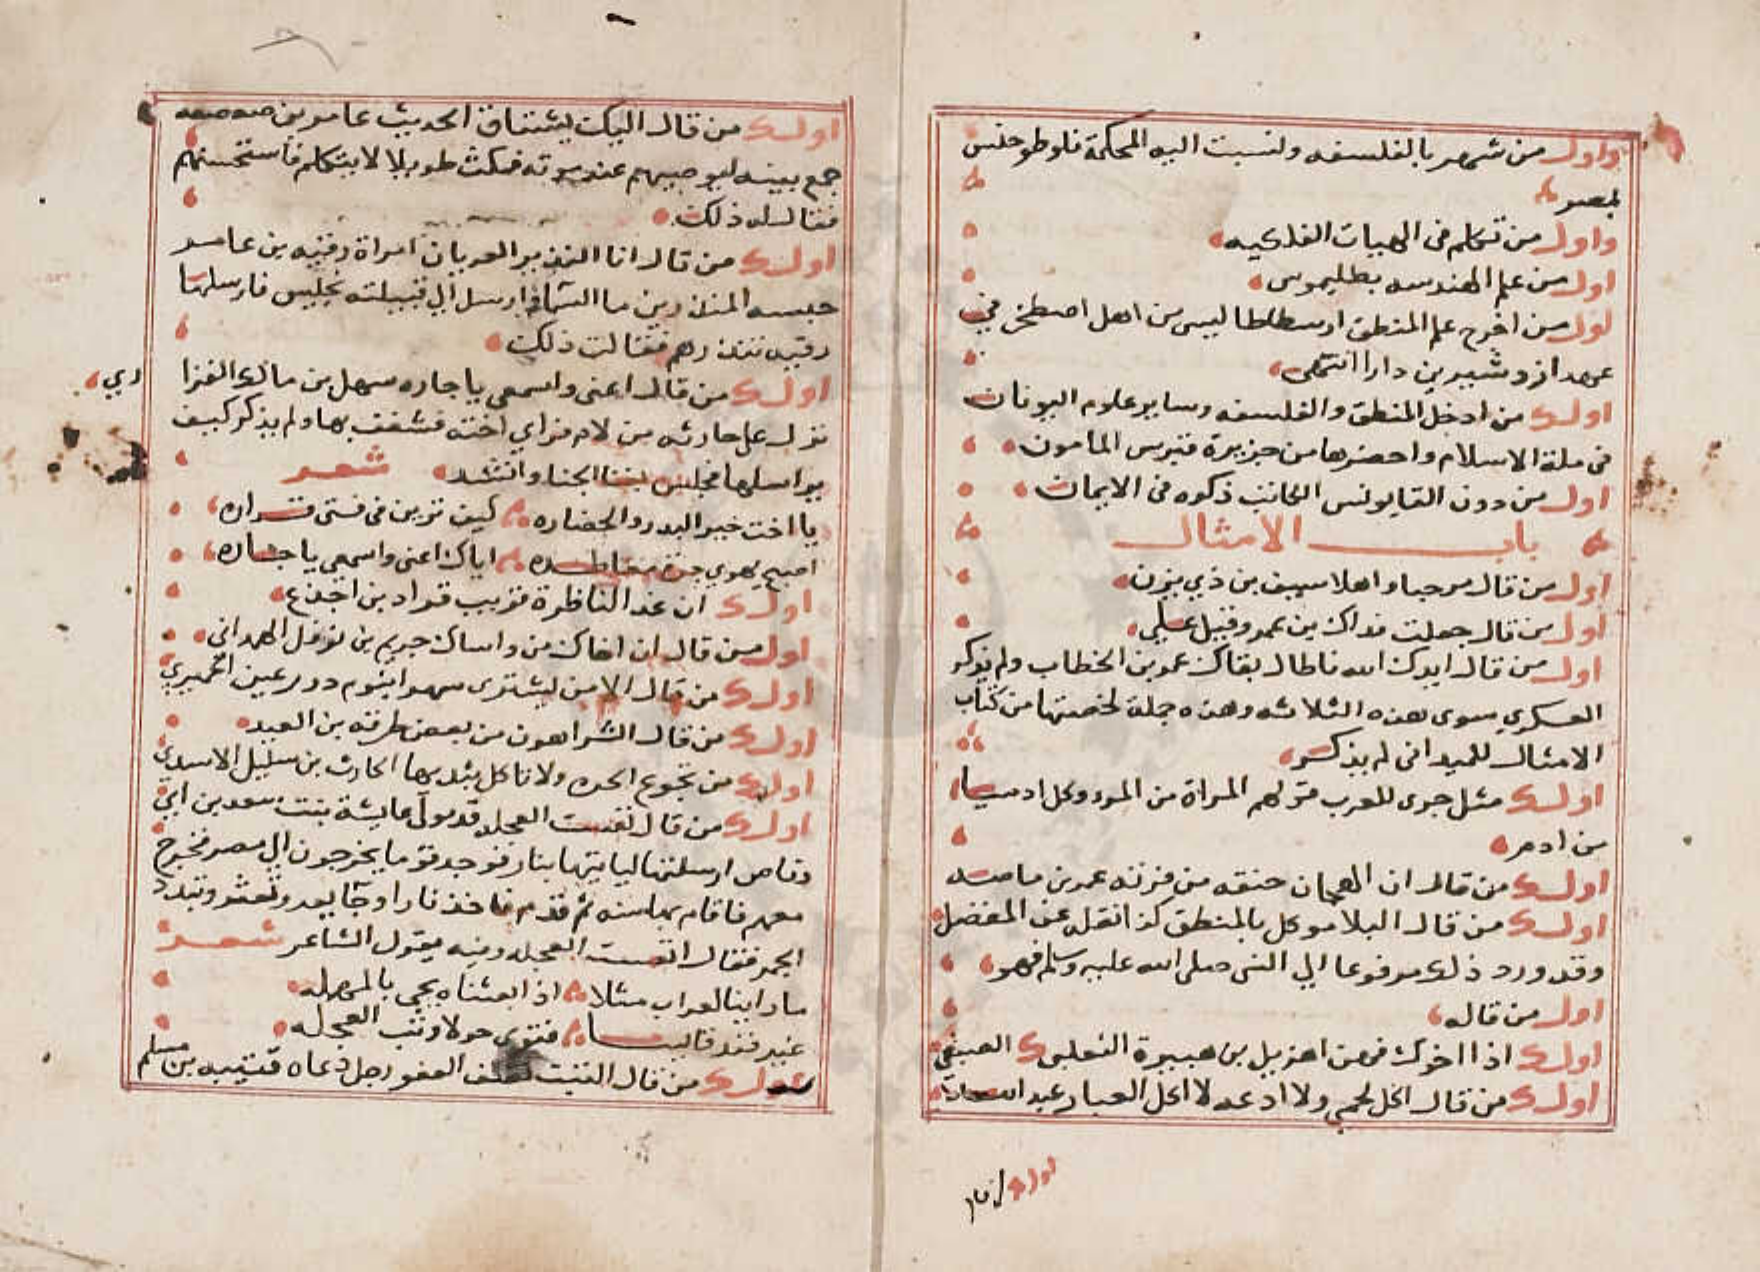 واول من شهر بالفلسفه ونسبت اليه الحكمة فلوطرخس
بمصر
واول من تكلم في الهيات الفلكيه
اول من علم الهندسه بطليموس
اول من اخرج علم المنطق ارسطاطاليس من اهل اصطخر في
عهد ازدشير بن دارا انتهى
اول من ادخل المنطق والفلسفه وساير علوم اليونان
في ملة الاسلام واحضرها من جزيرة قبرس المامون
اول من دون القابوس الكاتب ذكره في الايمان
باب الامثال
اول من قال مرحبا واهلا سيف بن ذي يزن
اول من قال جعلت فداك بن عمر وقيل علي
اول من قال ايدك الله فاطال بقاك عمر بن الخطاب ولم يذكر
العسكري سوى هذه الثلاثه وهذه جملة لخصتها من كتاب
الامثال للميداني لم يذكر
اول مثل جرى للعرب قولهم المراة من المرء وكل ادميا
من ادم
اول من قال ان الجبان حتفه من فوقه عمر بن مامه
اول من قال البلا موكل بالمنطق كذا نقل عن المفضل
وقد ورد ذلك مرفوعا الي النبي صلى الله عليه وسلم فهو
اول من قاله
اول اذا اخوك فهن اهزيل بن هبيرة التعلبي
اول من قال اكل لحمي ولا ادعه لاكل العيار عبد
اول من قال
اول من قال اليك يشتاق الحديث عامر بن صعصعه
جمع بينه ليوصيهم عند موته فمكث طويلا لا يتكلم فاستحسنهم
فقال له ذلك
اول من قال انا النذير العريان امراة رقيه بن عامر
حبسه المنذر بن ما السما فارسل الي قبيلته بجليس فارسلها
رقيه تنذرهم فقالت ذلك
اول من قال اعنى واسمعي ياجاره سهل بن مالك الفزا
ري
نزل على حارثه بن لام فراي اخته فشغف بها ولم يذكر كيف
يراسلها فجلس بفنا الخبا وانشد شعر
يا اخت خير البدر والحضاره كيف ترين في فتى فزاره
اصبح يهوي حرة معطاره اياك اعنى واسمعي يا جاره
اول ان غدا لناظره قريب قراد بن اجدع
اول من قال ان اخاك من واساك خريم بن نوفل الهمداني
اول من قال الا من يشترى سهرا بنوم ذو رعين الحميري
اول من قال الشر اهون من بعض طرفه بن العبد
اول من تجوع الحره ولا تاكل بثديها الحارث بن سليل الاسدي
اول من قال تعست العجله قد مولى عايشة بنت سعد بن ابي
وقاص ارسلته لياتيها بنار فوجد قوما يخرجون الي مصر فخرج
معهم فاقام بها سنه ثم قدم فاخذ نارا وجا يعدو وتعثر وتبدد
الجمر فقال تعست العجله وفيه يقول الشاعر شعر
ما راينا لغراب مثلا اذ بعثناه يجي بالمشمله
غير فند قابسا فثوى حولا وسب العجله
اول من قال النبت العفو رجل دعاه قتيبه بن مسلم